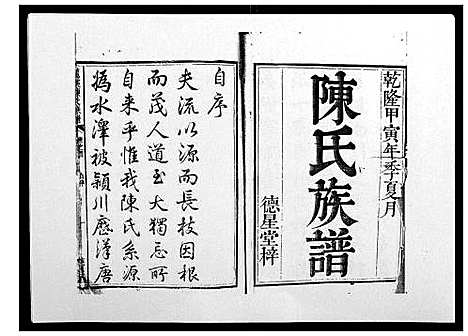 乾隆甲寅年季夏月
陳氏族譜
德星堂梓
自序
夫流以源而長枝因根
而茂人道至大獨忘所
自来乎惟我陳氏系源
嬀水澤被潁川歷漢唐